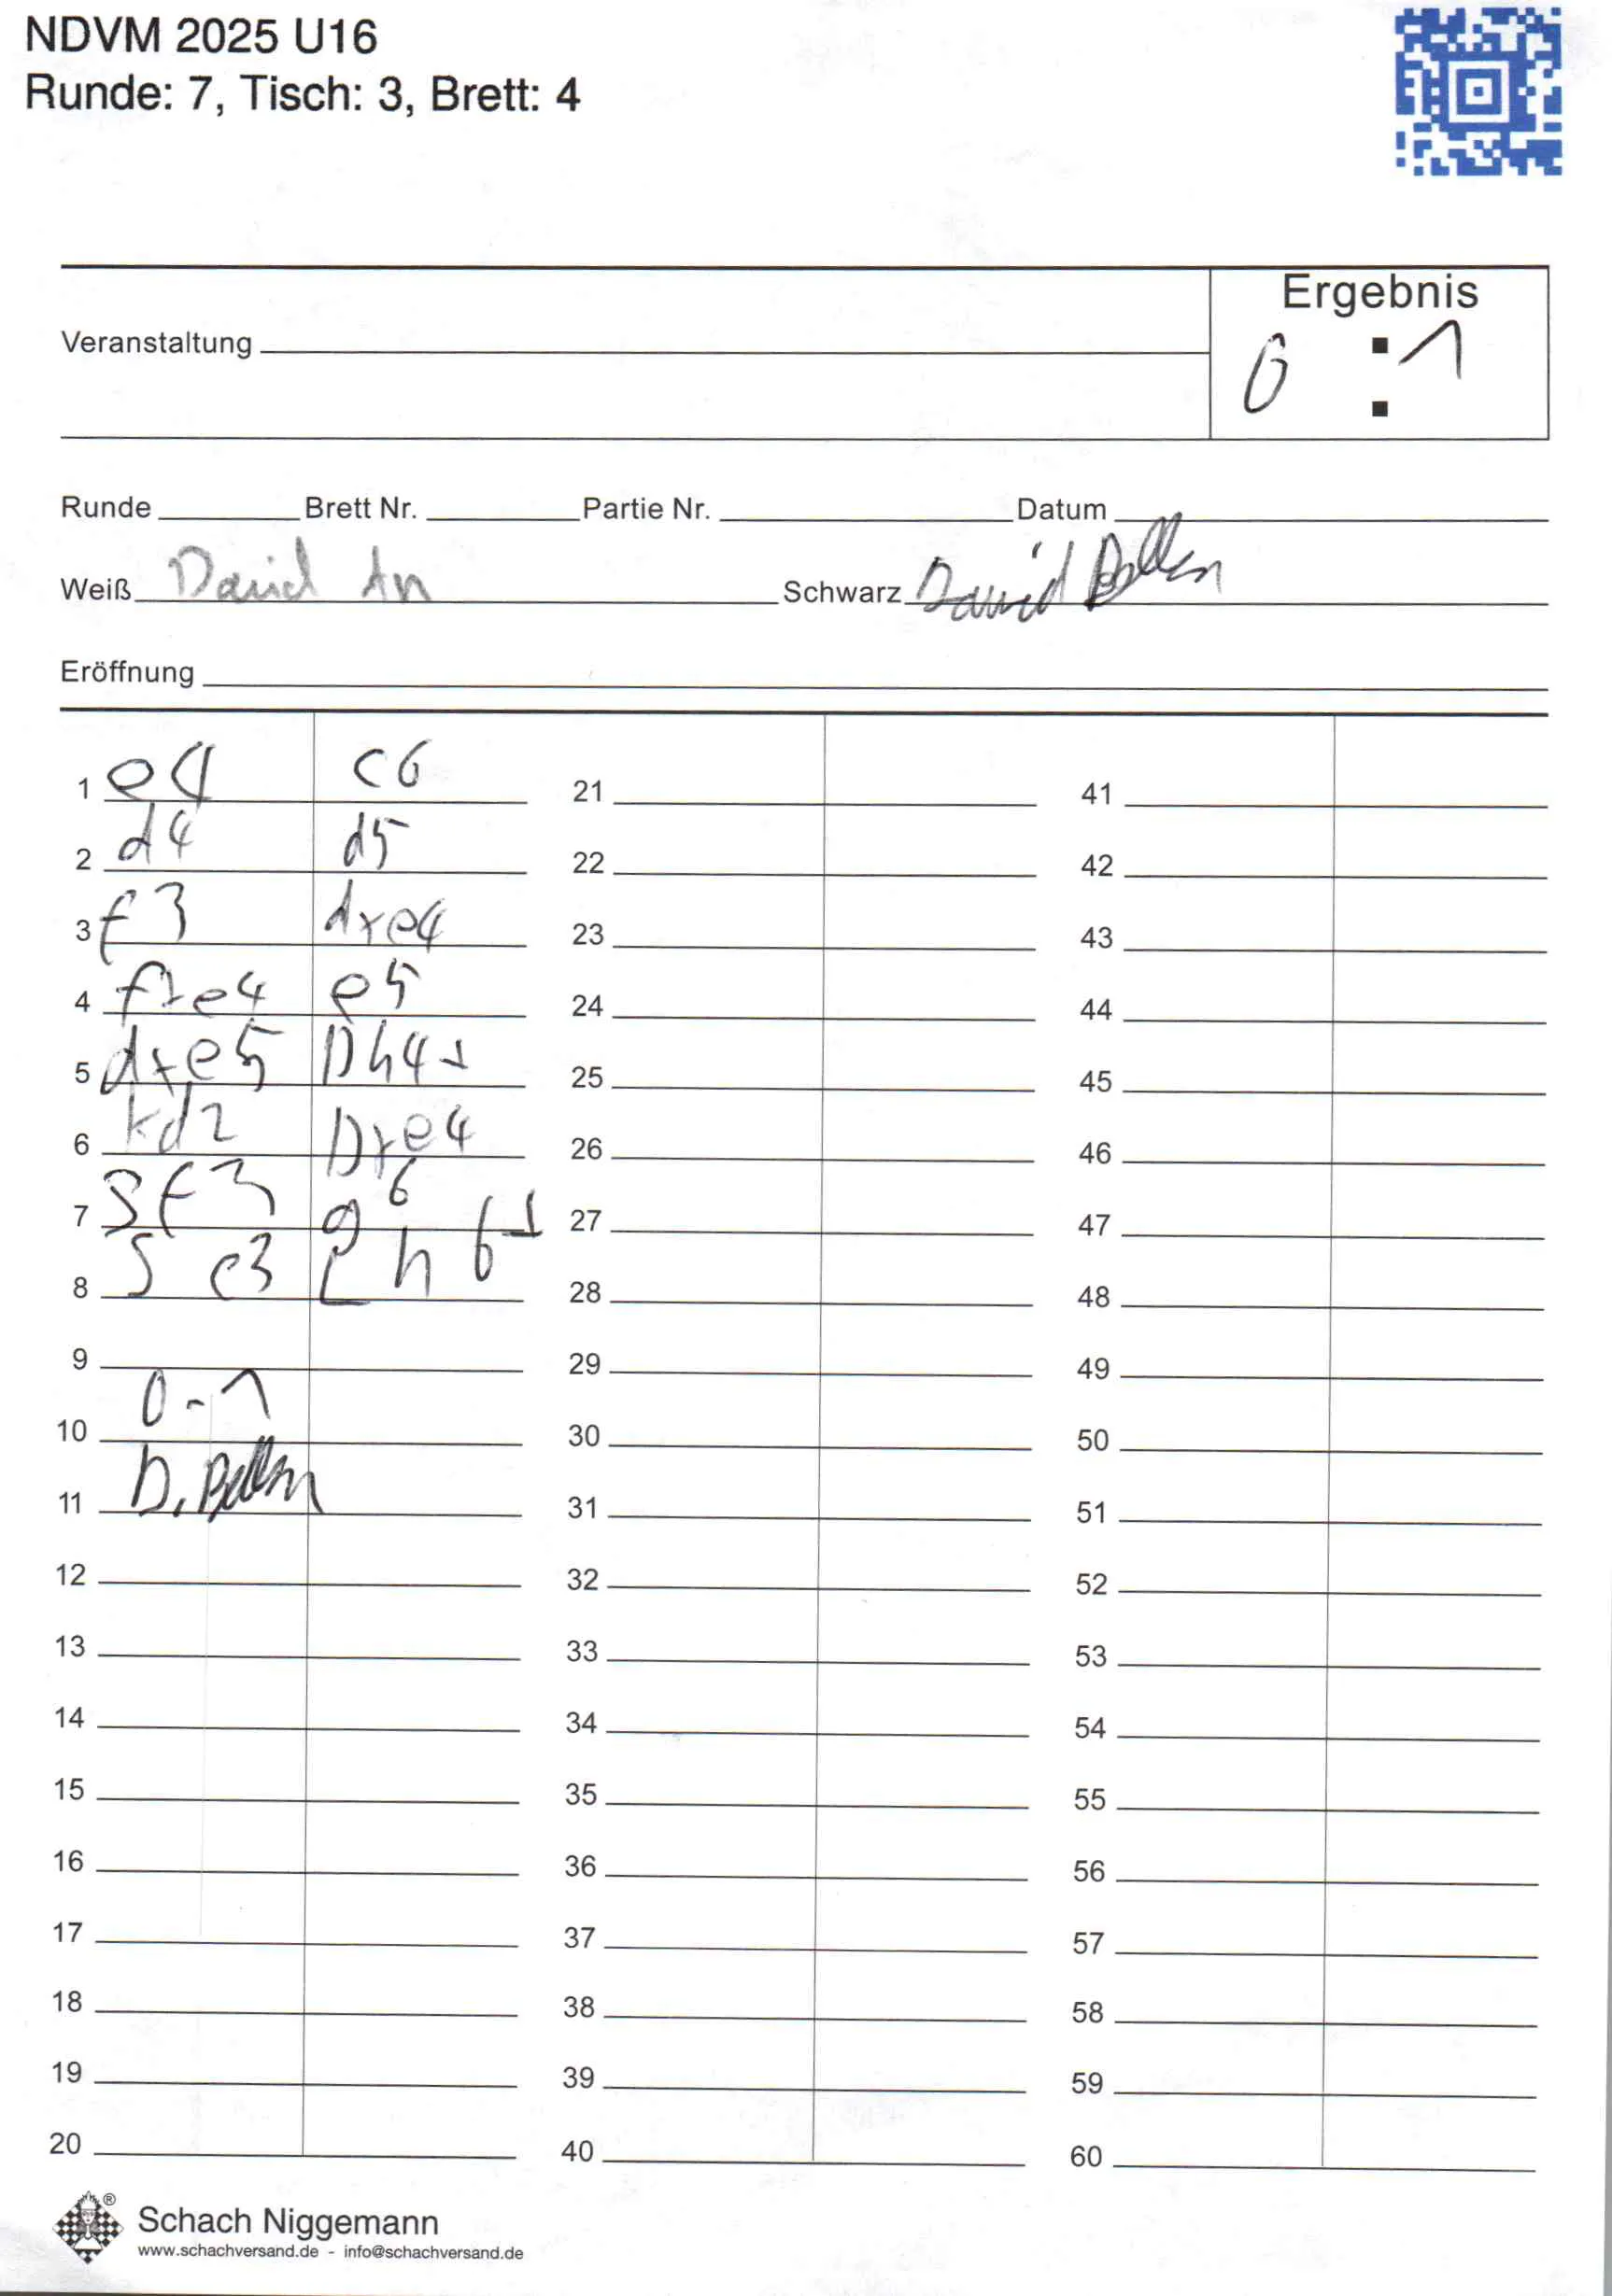 NDVM 2025 U16
Runde: 7, Tisch: 3, Brett: 4
Ergebnis
Veranstaltung
0 : 1
Runde Brett Nr. Partie Nr. Datum
Weiß David An Schwarz David
Eröffnung
1 e4 c6 21 41
2 d4 d5 22 42
3 f3 dxe4 23 43
4 fxe4 e5 24 44
5 dxe5 Dh4+ 25 45
6 kd2 Dxe4 26 46
7 Sf3 g6 27 47
8 Sc3 Lh6+ 28 48
9 29 49
0-1
10 30 50
11 D. 31 51
12 32 52
13 33 53
14 34 54
15 35 55
16 36 56
17 37 57
18 38 58
19 39 59
20 40 60
® Schach Niggemann
www.schachversand.de - info@schachversand.de